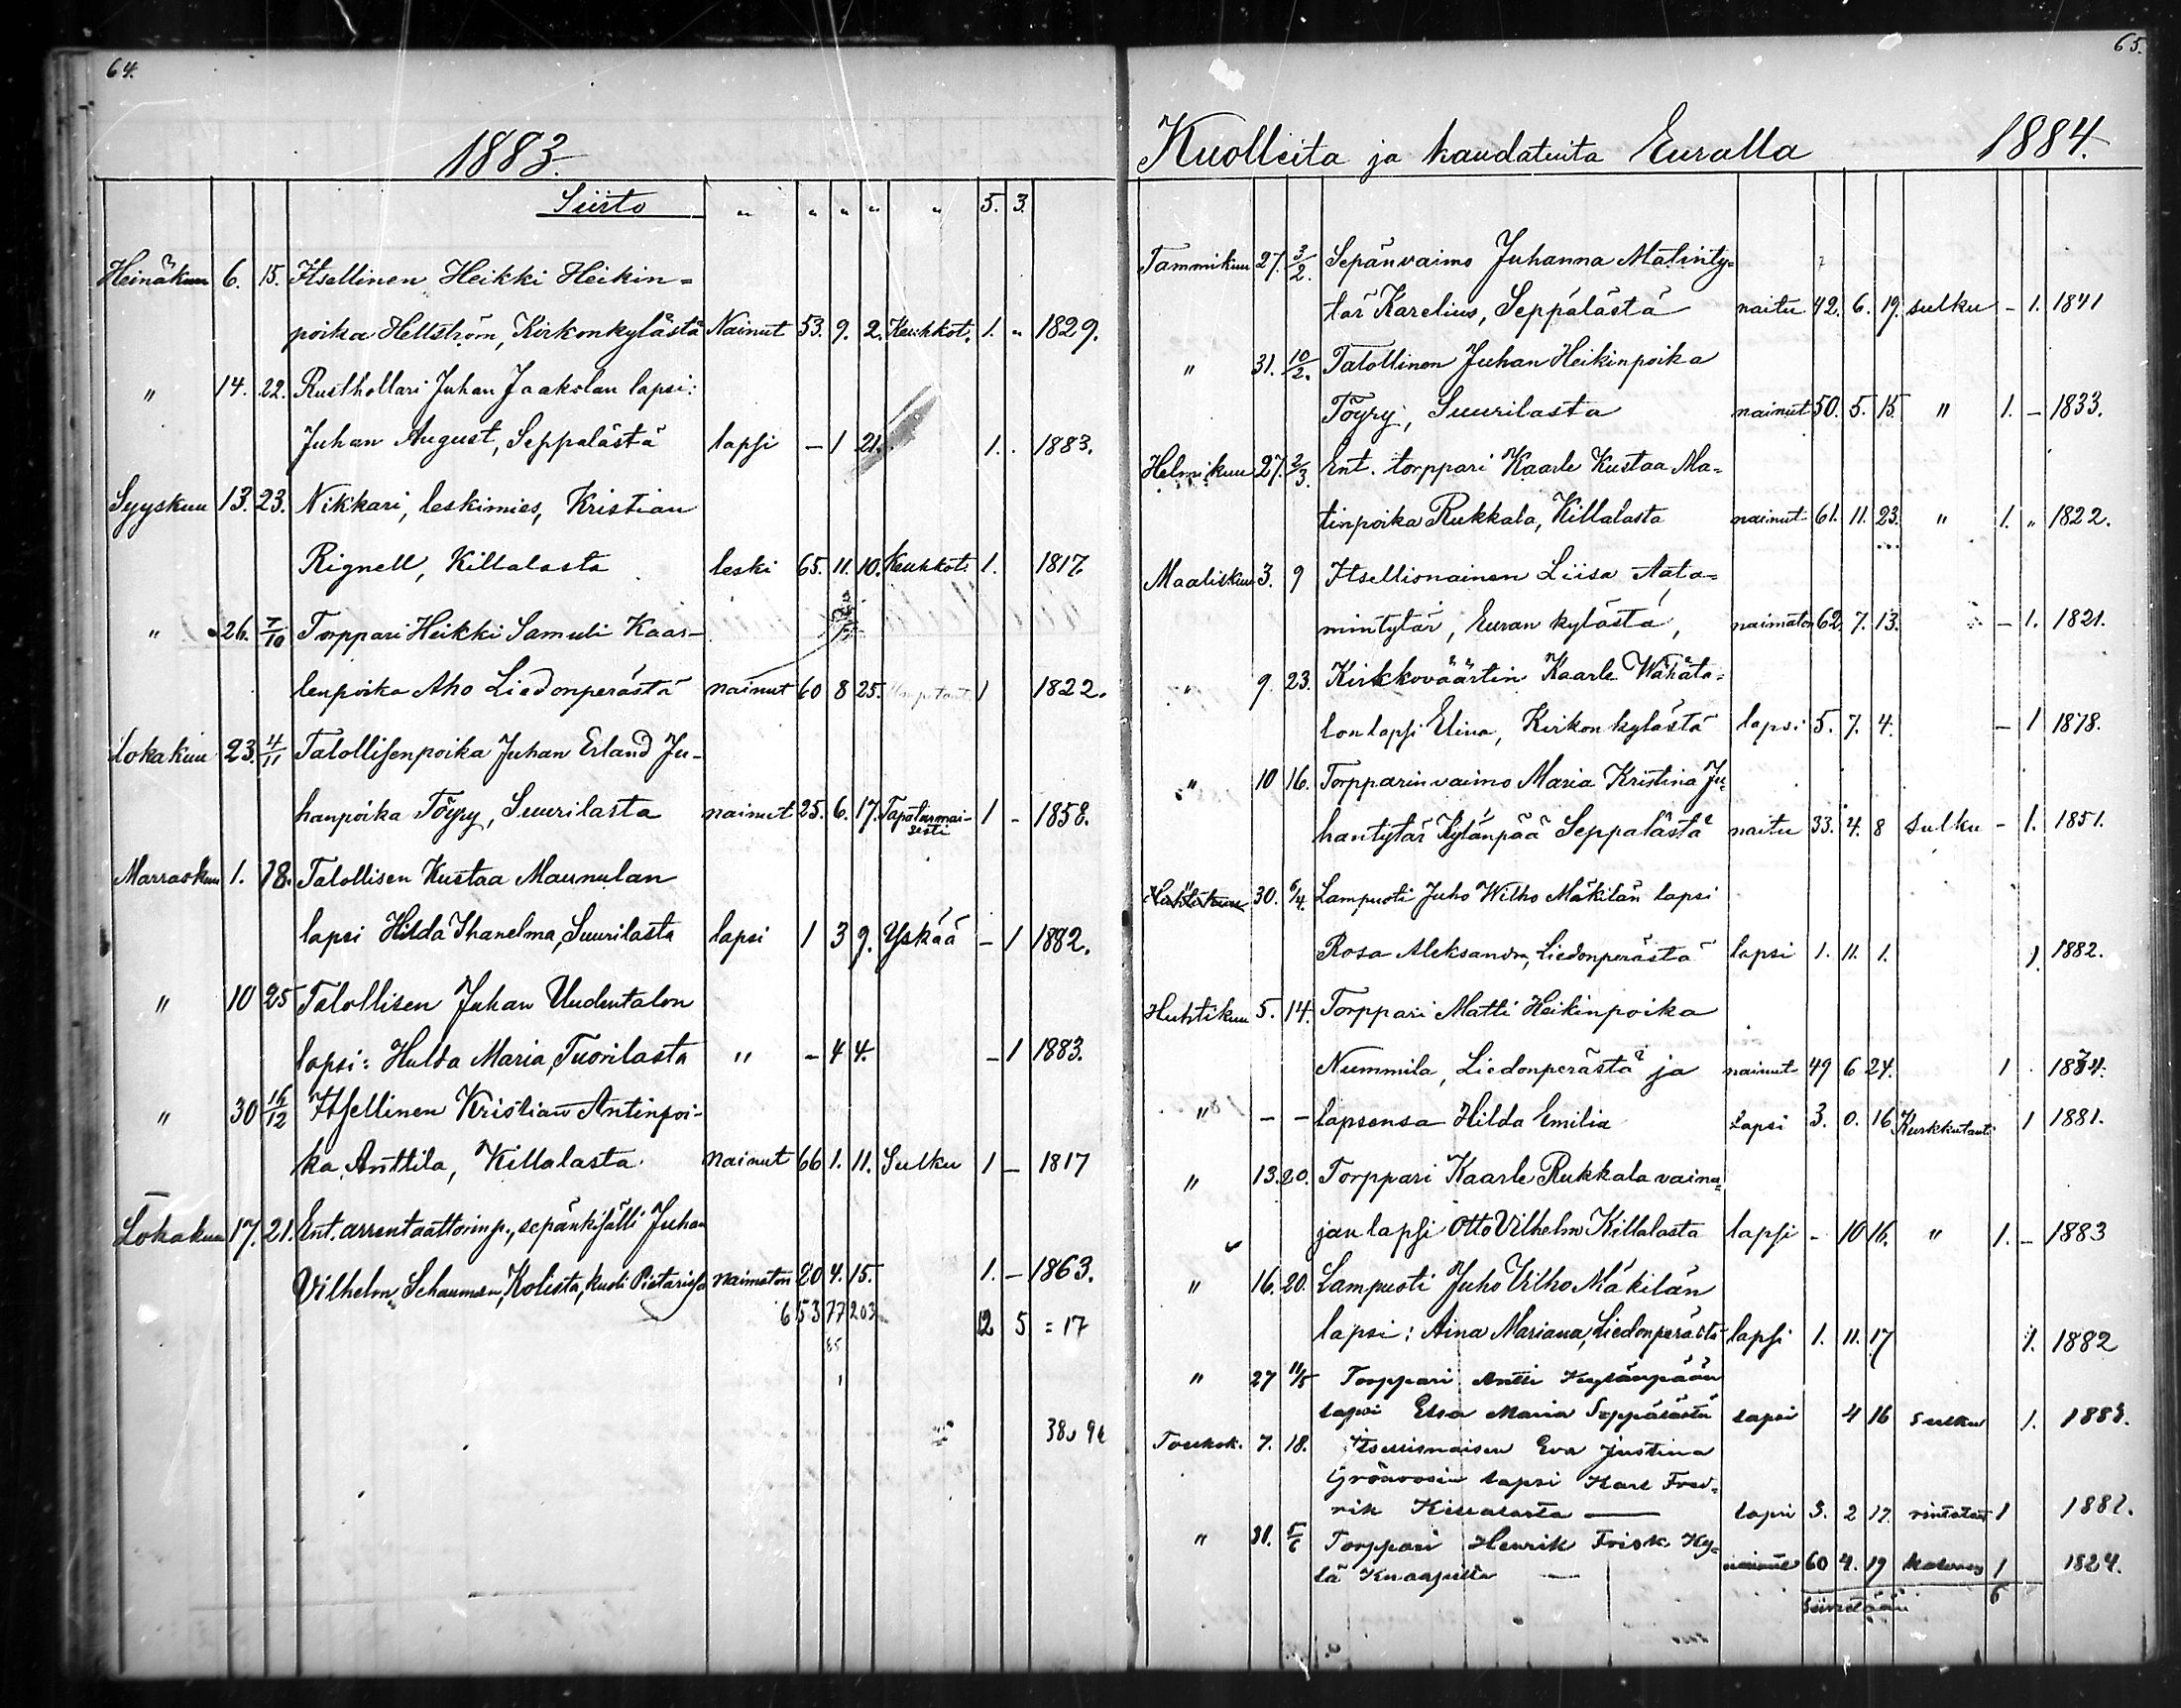 64.
1883.
Siirto „ „ „ „ „ 5. 3.
Heinäkuu 6. 15. Itsellinen Heikki Heikin-
poika Hellström, Kirkonkylästä Nainut 53. 9. 2. Keuhkot. 1. „ 1829.
„ 14. 22. Rusthollari Juhan Jaakolan lapsi:
Juhan August, Seppälästä lapsi – 1 21. 1. . 1883.
Syyskuu 13. 23. Nikkari, leskimies, Kristian
Rignell, Killalasta leski 65. 11. 10. Keuhkot. 1. 1817.
„ 26. 7/10 Torppari Heikki Samuli Kaar-
lenpoika Aho Liedonperästä nainut 60 8 25. 1 1822.
Lokakuu 23. 4/11 Talollisenpoika Juhan Erland Ju-
hanpoika Töyry, Suurilasta nainut 25. 6. 17. Tapaturmai- 1 – 1858.
sesti
Marraskuu 1. 18. Talollisen Kustaa Maunulan
lapsi Hilda Ihanelma, Suurilasta lapsi 1 3 9. Yskää – 1 1882.
„ 10 25 Talollisen Juhan Uudentalon
lapsi: Hulda Maria, Tuorilasta „ – 4 4. – 1 1883.
„ 30 16/12 Itsellinen Kristian Antinpoi-
ka Anttila, Killalasta nainut 66 1. 11. Sulku 1 – 1817
Lokakuu 17. 21. Ent. arrentaattorin p., sepänkisälli Juhan
Vilhelm Schauman, Kolista, kuoli Pietarissa naimaton 20 4. 15. 1. – 1863.
653 77 203 12 5 = 17
85
1
65.
Kuolleita ja haudatuita Euralla 1884.
Tammikuu 27. 3/2. Sepänvaimo Juhanna Matinty-
tär Karelius, Seppälästä naitu 42. 6. 19. sulku – 1. 1841
„ 31. 10/2. Talollinen Juhan Heikinpoika
Töyry, Suurilasta nainut 50. 5. 15. „ 1. – 1833.
Helmikuu 27. 2/3. Ent. torppari Kaarle Kustaa Ma-
tinpoika Rukkala, Killalasta nainut 61. 11. 23. „ 1. „ 1822.
Maaliskuu 3. 9 Itsellisnainen Liisa Aata-
mintytär, Euran kylästä, naimaton 62. 7. 13. – 1. 1821.
„ 9. 23. Kirkkoväärtin Kaarle Wähäta-
lon lapsi Elina, Kirkonkylästä lapsi 5. 7. 4. – 1 1878.
„ 10 16. Torpparinvaimo Maria Kristina Ju-
hantytär Kylänpää Seppälästä naitu 33. 4. 8 Sulku – 1. 1851.
Huhtikuu 30. 6/4. Lampuoti Juho Wilho Mäkilän lapsi
Rosa Aleksandra, Liedonperästä lapsi 1. 11. 1. 1. 1882.
Huhtikuu 5. 14. Torppari Matti Heikinpoika
Nummila, Liedonperästä ja nainut 49 6 24. 1 . 1834.
„ – – lapsensa Hilda Emilia Lapsi 3. 0. 16 Kurkkutauti 1 1881.
„ 13. 20. Torppari Kaarle Rukkala vaina-
jan lapsi Otto Vilhelm Killalasta lapsi – 10 16. „ 1. – 1883
„ 16. 20. Lampuoti Juho Vilho Mäkilän
lapsi: Aina Mariana, Liedonperästä lapsi 1. 11. 17 1. 1882
„ 27 11/5 Torppari Antti Kylänpään
lapsi Elsa Maria Seppälästä lapsi 4 16 sulku 1. 1883.
Toukok. 7. 18. Itsellisnaisen Eva Justina
Grönroosin lapsi Karl Fred-
rik Killalasta — lapsi 3. 2 17. rintataut 1 1881.
„ 31. 5/6 Torppari Henrik Frisk Ky-
lä Knaapilta — nainut 60 4. 19 1 1824.
Siirretään 6